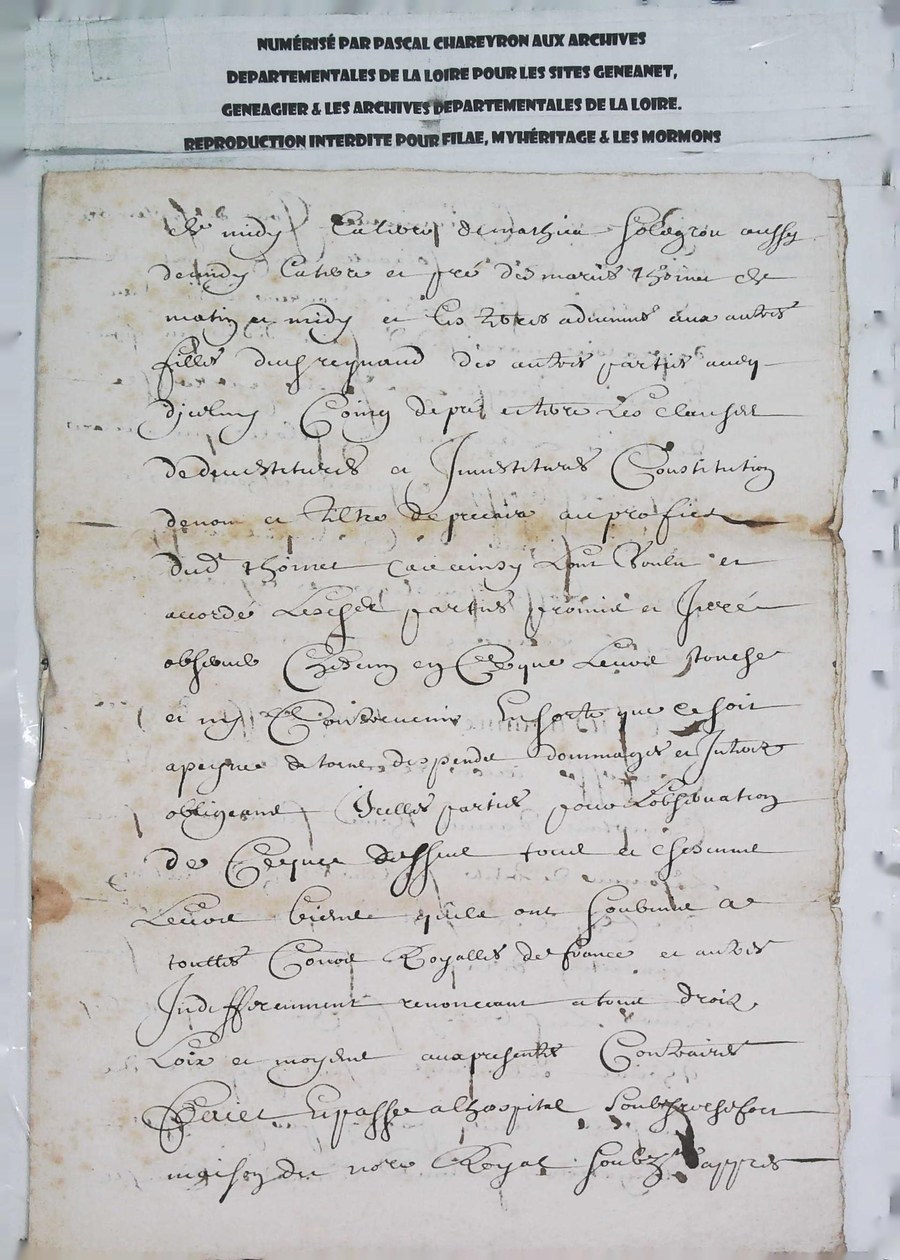 NUMÉRISÉ PAR PASCAL CHAREYRON AUX ARCHIVES
DEPARTEMENTALES DE LA LOIRE POUR LES SITES GENEANET,
GENEAGIER & LES ARCHIVES DEPARTEMENTALES DE LA LOIRE.
REPRODUCTION INTERDITE POUR FILAE, MYHÉRITAGE & LES MORMONS
de midy la terre de mathieu aussy
de midy la terre et pré des maries thoinet de
matin et midy et les terres advenues aux autres
filles dud reynaud des autres parties avecq
de pnt et les clauses
de devestitures et Investitures Constitution
de nom et tiltre de precaire au proffict
dud thoinet car ainsy l'ont voulu et
accordé lesd parties promis et Juré
observer Chacun en ce que les touche
et ny Contrevenir En sorte que ce soit
a peyne de tous despends dommages et Intherestz
obligeant Icelles parties pour l'observation
de ce que dessus tous et chacuns
leurs biens qu'ils ont soubmis a
touttes Cours Royalles de france et autres
Indifferemment renonceant a tous droictz
Loix et moyens aux presentes Contraires
Faict et passé a lhospital soubz rochefort
maison du nore Royal soubzne appres